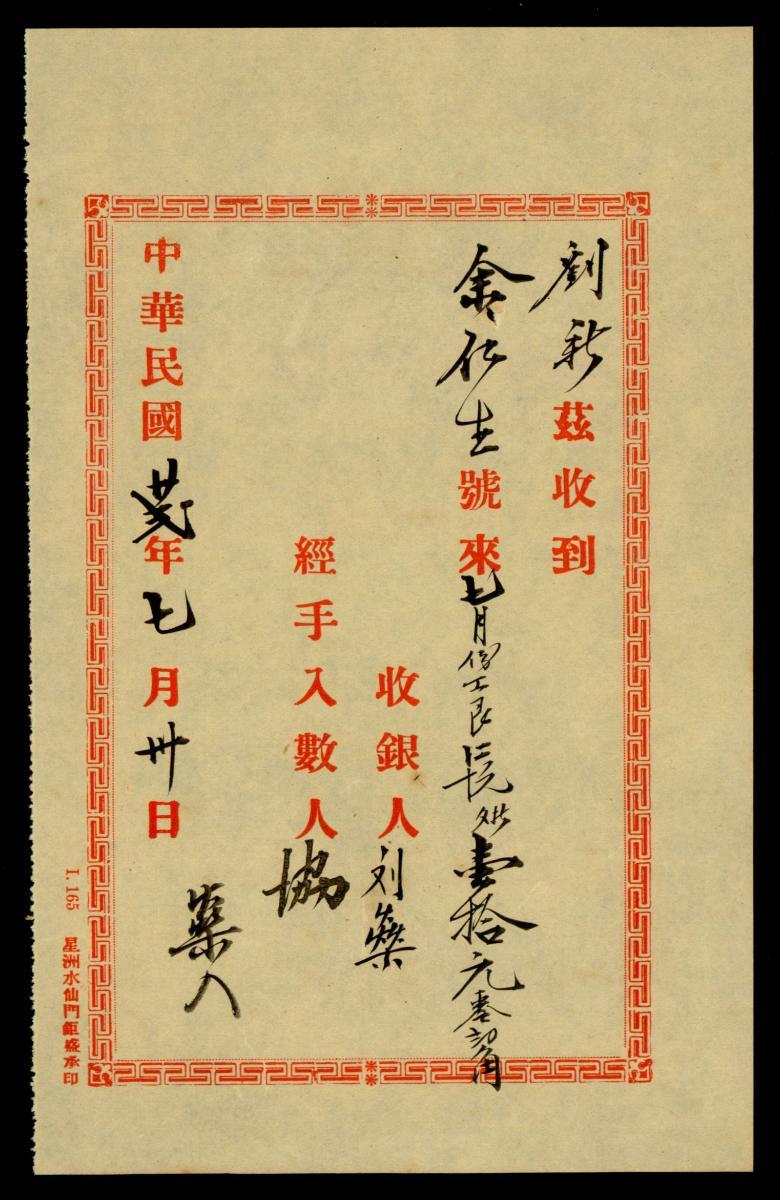 劉新茲收到
余仁生號來七月份工艮長俬壹拾元
收銀人刘燊
經手入數人協
燊入
中華民國年七月卅日
L. 165 星洲水仙門鉅盛承印